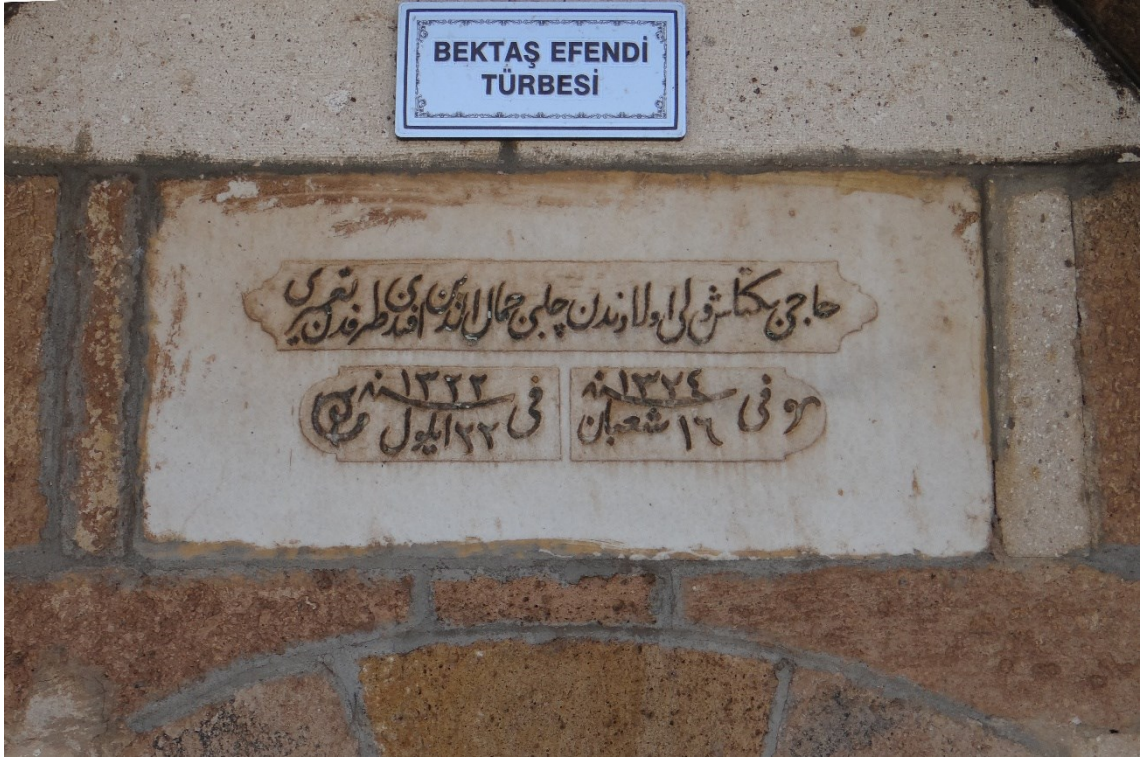 BEKTAŞ EFENDİ
TÜRBESİ
حاجی بكتاش ولی اولادندن چلبی جمال الدین افندی طرفندن تعمیری
فی ١٦ شعبان سنه ١٣٢٤
فی ٢٢ ایلول سنه ١٣٢٢